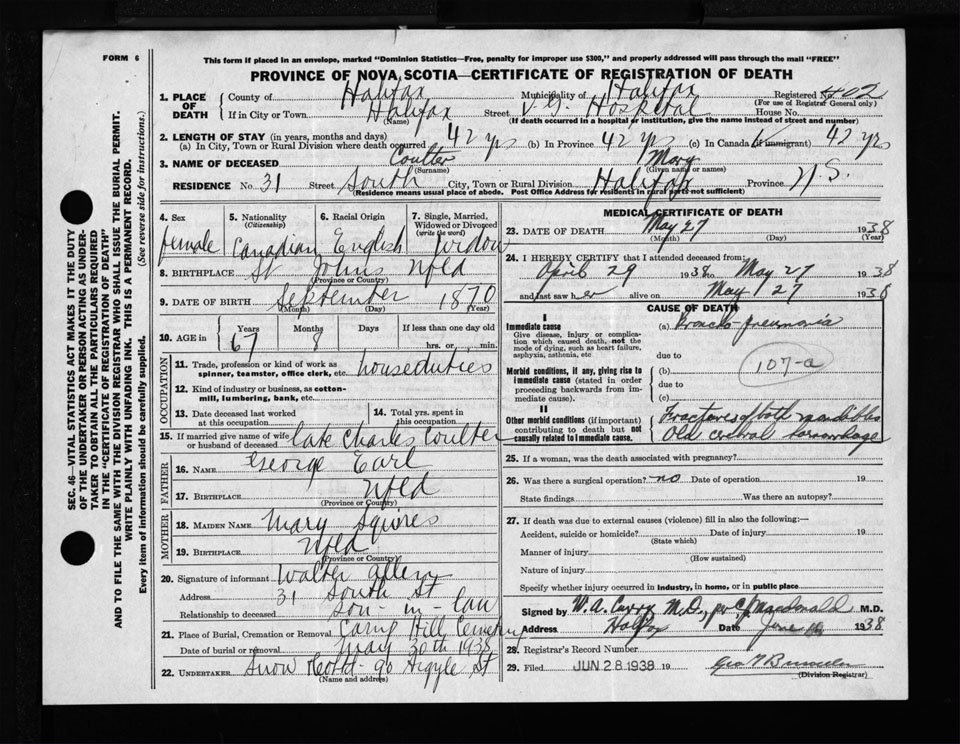 FORM 6
This form if placed in an envelope, marked "Dominion Statistics—Free, penalty for improper use $300," and properly addressed will pass through the mail "FREE"
PROVINCE OF NOVA SCOTIA—CERTIFICATE OF REGISTRATION OF DEATH
1. PLACE OF DEATH
County of Halifax Municipality of Halifax Registered No. 402
(For use of Registrar General only)
If in City or Town Halifax Street V. G. Hospital House No.
(Name) (If death occurred in a hospital or institution, give the name instead of street and number)
2. LENGTH OF STAY (in years, months and days)
(a) In City, Town or Rural Division where death occurred 42 yrs (b) In Province 42 yrs (c) In Canada (if immigrant) 42 yrs
3. NAME OF DECEASED Coulter Mary
(Surname) (Given name or names)
RESIDENCE No. 31 Street South City, Town or Rural Division Halifax Province N.S.
(Residence means usual place of abode. Post Office Address for residents in rural parts not sufficient)
4. Sex female
5. Nationality (Citizenship) Canadian
6. Racial Origin English
7. Single, Married, Widowed or Divorced (write the word) widow
8. BIRTHPLACE St Johns Nfld
(Province or Country)
9. DATE OF BIRTH September 1870
(Month) (Day) (Year)
10. AGE in Years 67 Months 8 Days If less than one day hrs. or min.
OCCUPATION
11. Trade, profession or kind of work as spinner, teamster, office clerk, etc. housduties
12. Kind of industry or business, as cotton-mill, lumbering, bank, etc.
13. Date deceased last worked at this occupation
14. Total yrs. spent in this occupation
15. If married give name of wife or husband of deceased late Charles Coulter
FATHER
16. NAME George Earl
17. BIRTHPLACE Nfld
(Province or Country)
MOTHER
18. MAIDEN NAME Mary Squires
19. BIRTHPLACE Nfld
(Province or Country)
20. Signature of informant Walter Allen
Address 31 South St
Relationship to deceased son-in-law
21. Place of Burial, Cremation or Removal Camp Hill Cemetery
Date of burial or removal May 30th 1938
22. UNDERTAKER Snow 90 Argyle St
(Name and address)
MEDICAL CERTIFICATE OF DEATH
23. DATE OF DEATH May 27 1938
(Month) (Day) (Year)
24. I HEREBY CERTIFY that I attended deceased from:
April 29 1938 to May 27 1938
and last saw her alive on May 27 1938
CAUSE OF DEATH
I
Immediate cause
Give disease, injury or complication which caused death, not the mode of dying, such as heart failure, asphyxia, asthenia, etc
(a) Broncho-pneumonia
due to
Morbid conditions, if any, giving rise to immediate cause (stated in order proceeding backwards from immediate cause).
(b)
107-a
due to
(c)
II
Other morbid conditions (if important) contributing to death but not causally related to immediate cause.
Fractures of both mandibles
Old cerebral haemorrhage
25. If a woman, was the death associated with pregnancy?
26. Was there a surgical operation? no Date of operation 19
State findings Was there an autopsy?
27. If death was due to external causes (violence) fill in also the following:—
Accident, suicide or homicide? Date of injury 19
(State which)
Manner of injury
(How sustained)
Nature of injury
Specify whether injury occurred in industry, in home, or in public place
Signed by W. A. M.D., per C. J. Macdonald M.D.
Address Halifax Date June 1938
28. Registrar's Record Number
29. Filed JUN 28 1938 19
(Division Registrar)
SEC. 46—VITAL STATISTICS ACT MAKES IT THE DUTY
OF THE UNDERTAKER OR PERSON ACTING AS UNDER-
TAKER TO OBTAIN ALL THE PARTICULARS REQUIRED
IN THE "CERTIFICATE OF REGISTRATION OF DEATH"
AND TO FILE THE SAME WITH THE DIVISION REGISTRAR WHO SHALL ISSUE THE BURIAL PERMIT.
WRITE PLAINLY WITH UNFADING INK. THIS IS A PERMANENT RECORD.
Every item of information should be carefully supplied. (See reverse side for instructions.)